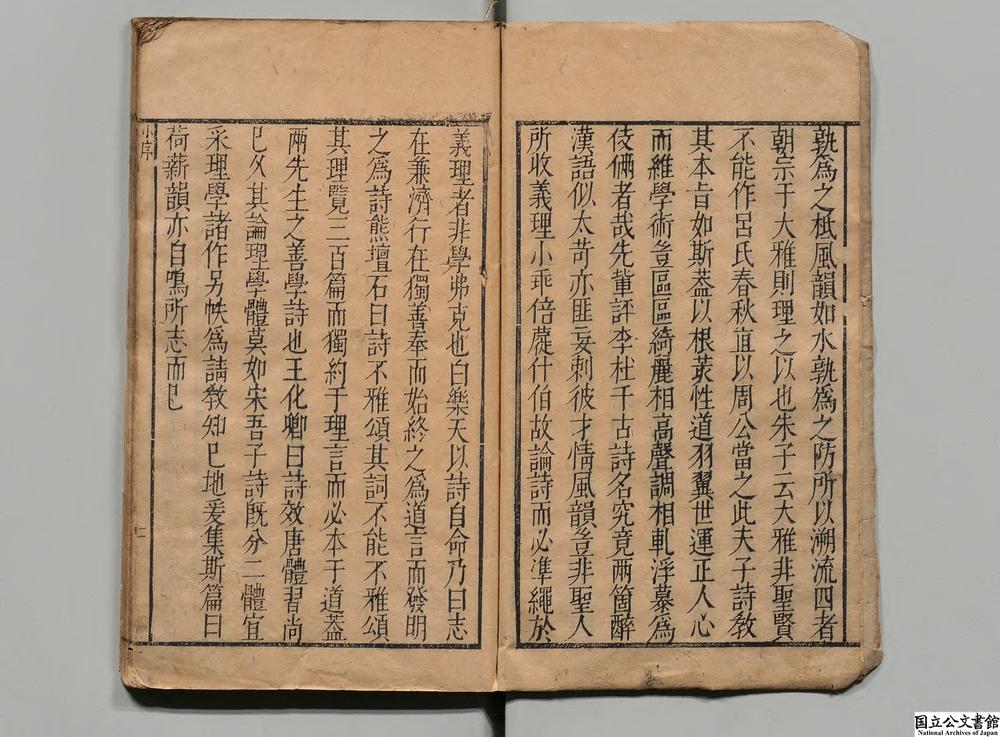 孰為之柢風韻如水孰為之防所以溯流四者
朝宗于大雅則理之以也朱子云大雅非聖賢
不能作呂氏春秋直以周公當之此夫子詩教
其本旨如斯葢以根荄性道羽翼世運正人心
而維學術豈區區綺麗相高聲調相軋浮慕為
伎倆者哉先軰評李杜千古詩名究竟兩箇醉
漢語似太苛亦匪妄刺彼才情風韻豈非聖人
所收義理小乖倍蓰什伯故論詩而必準繩於
義理者非學弗克也白樂天以詩自命乃曰志
在兼濟行在獨善奉而始終之為道言而發明
之為詩熊壇石曰詩不雅頌其詞不能不雅頌
其理覽三百篇而獨約于理言而必本于道葢
兩先生之善學詩也王化卿曰詩效唐體習尚
已久其論理學體莫如宋吾子詩既分二體宜
采理學諸作另帙為請教知巳地爰集斯篇曰
荷薪韻亦自鳴所志而巳
小序
二
国立公文書館
National Archives of Japan